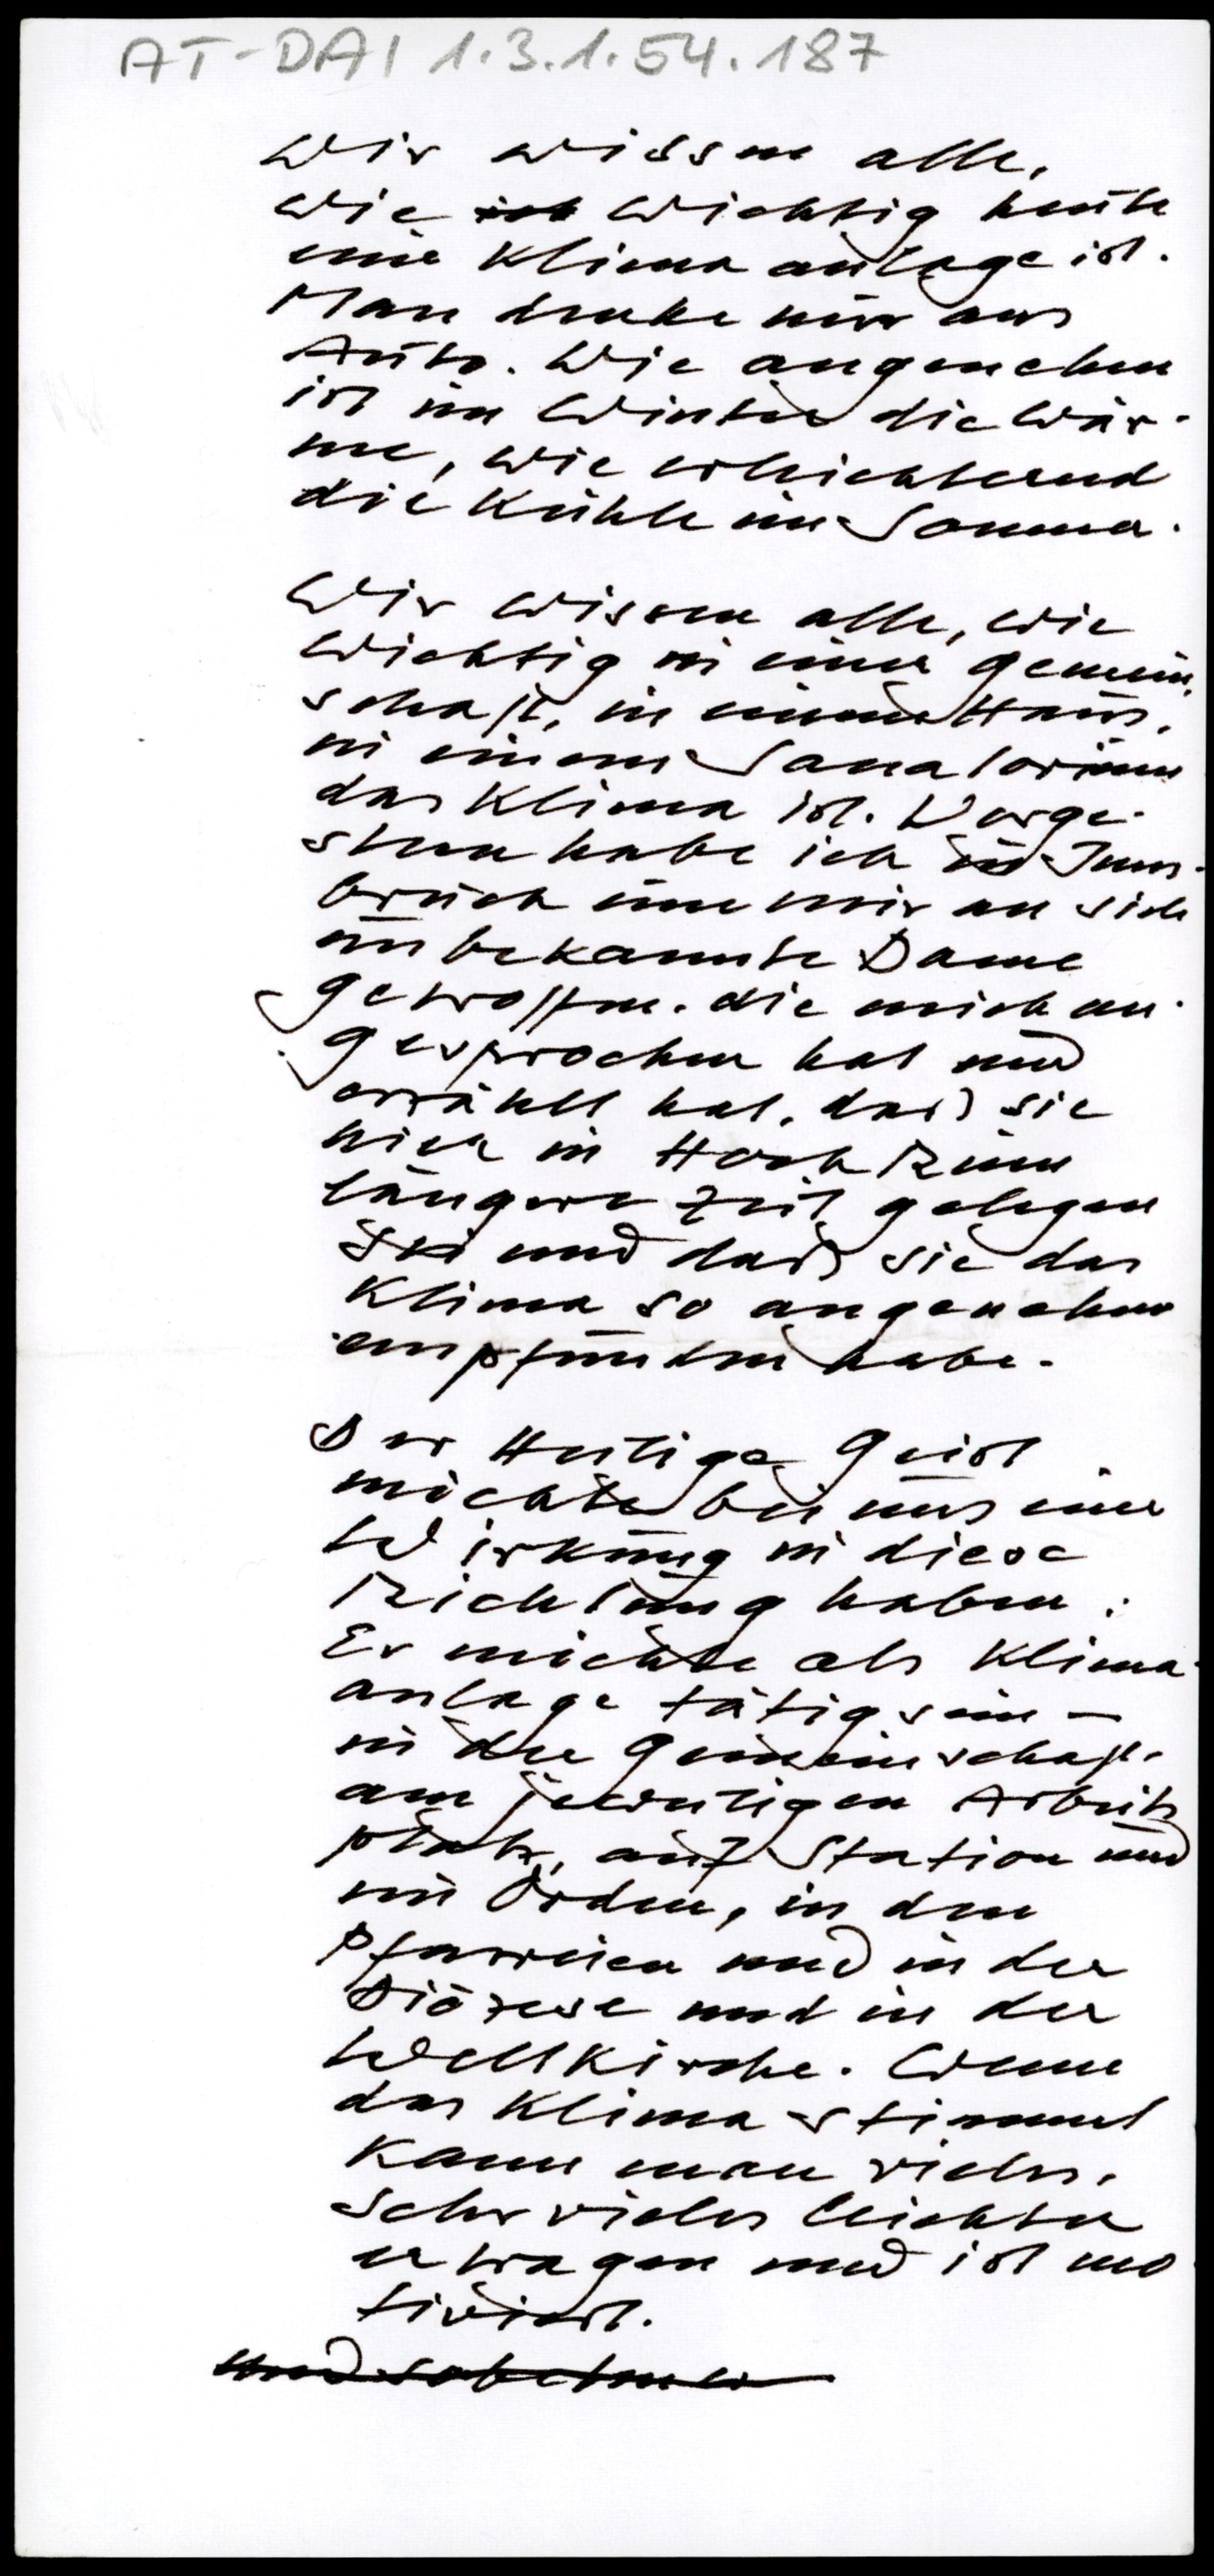 AT-DAI 1.3.1.54.187
Wir wissen alle,
wie ist wichtig heute
eine Klimaanlage ist.
Man denke nur ans
Auto. Wie angenehm
ist im Winter die Wär-
me, wie erleichternd
die Kühle im Sommer.
Wir wissen alle, wie
wichtig in einer Gemein-
schaft, in einem Haus,
in einem Sanatorium
das Klima ist. Vorge-
stern habe ich in Inns-
bruck eine mir an sich
unbekannte Dame
getroffen. die mich an-
gesprochen hat und
erzählt hat, daß sie
hier in Hoch Rum
längere Zeit gelegen
sei und daß sie das
Klima so angenehm
empfunden habe.
Der Heilige Geist
möchte bei uns eine
Wirkung in diese
Richtung haben:
Er möchte als Klima-
anlage tätig sein –
in der Gemeinschaft,
am jeweiligen Arbeits
platz, auf Station und
im Orden, in den
Pfarreien und in der
Diözese und in der
Weltkirche. Wenn
das Klima stimmt
kann man vieles,
sehr vieles leichter
ertragen und ist mo-
tiviert.
und